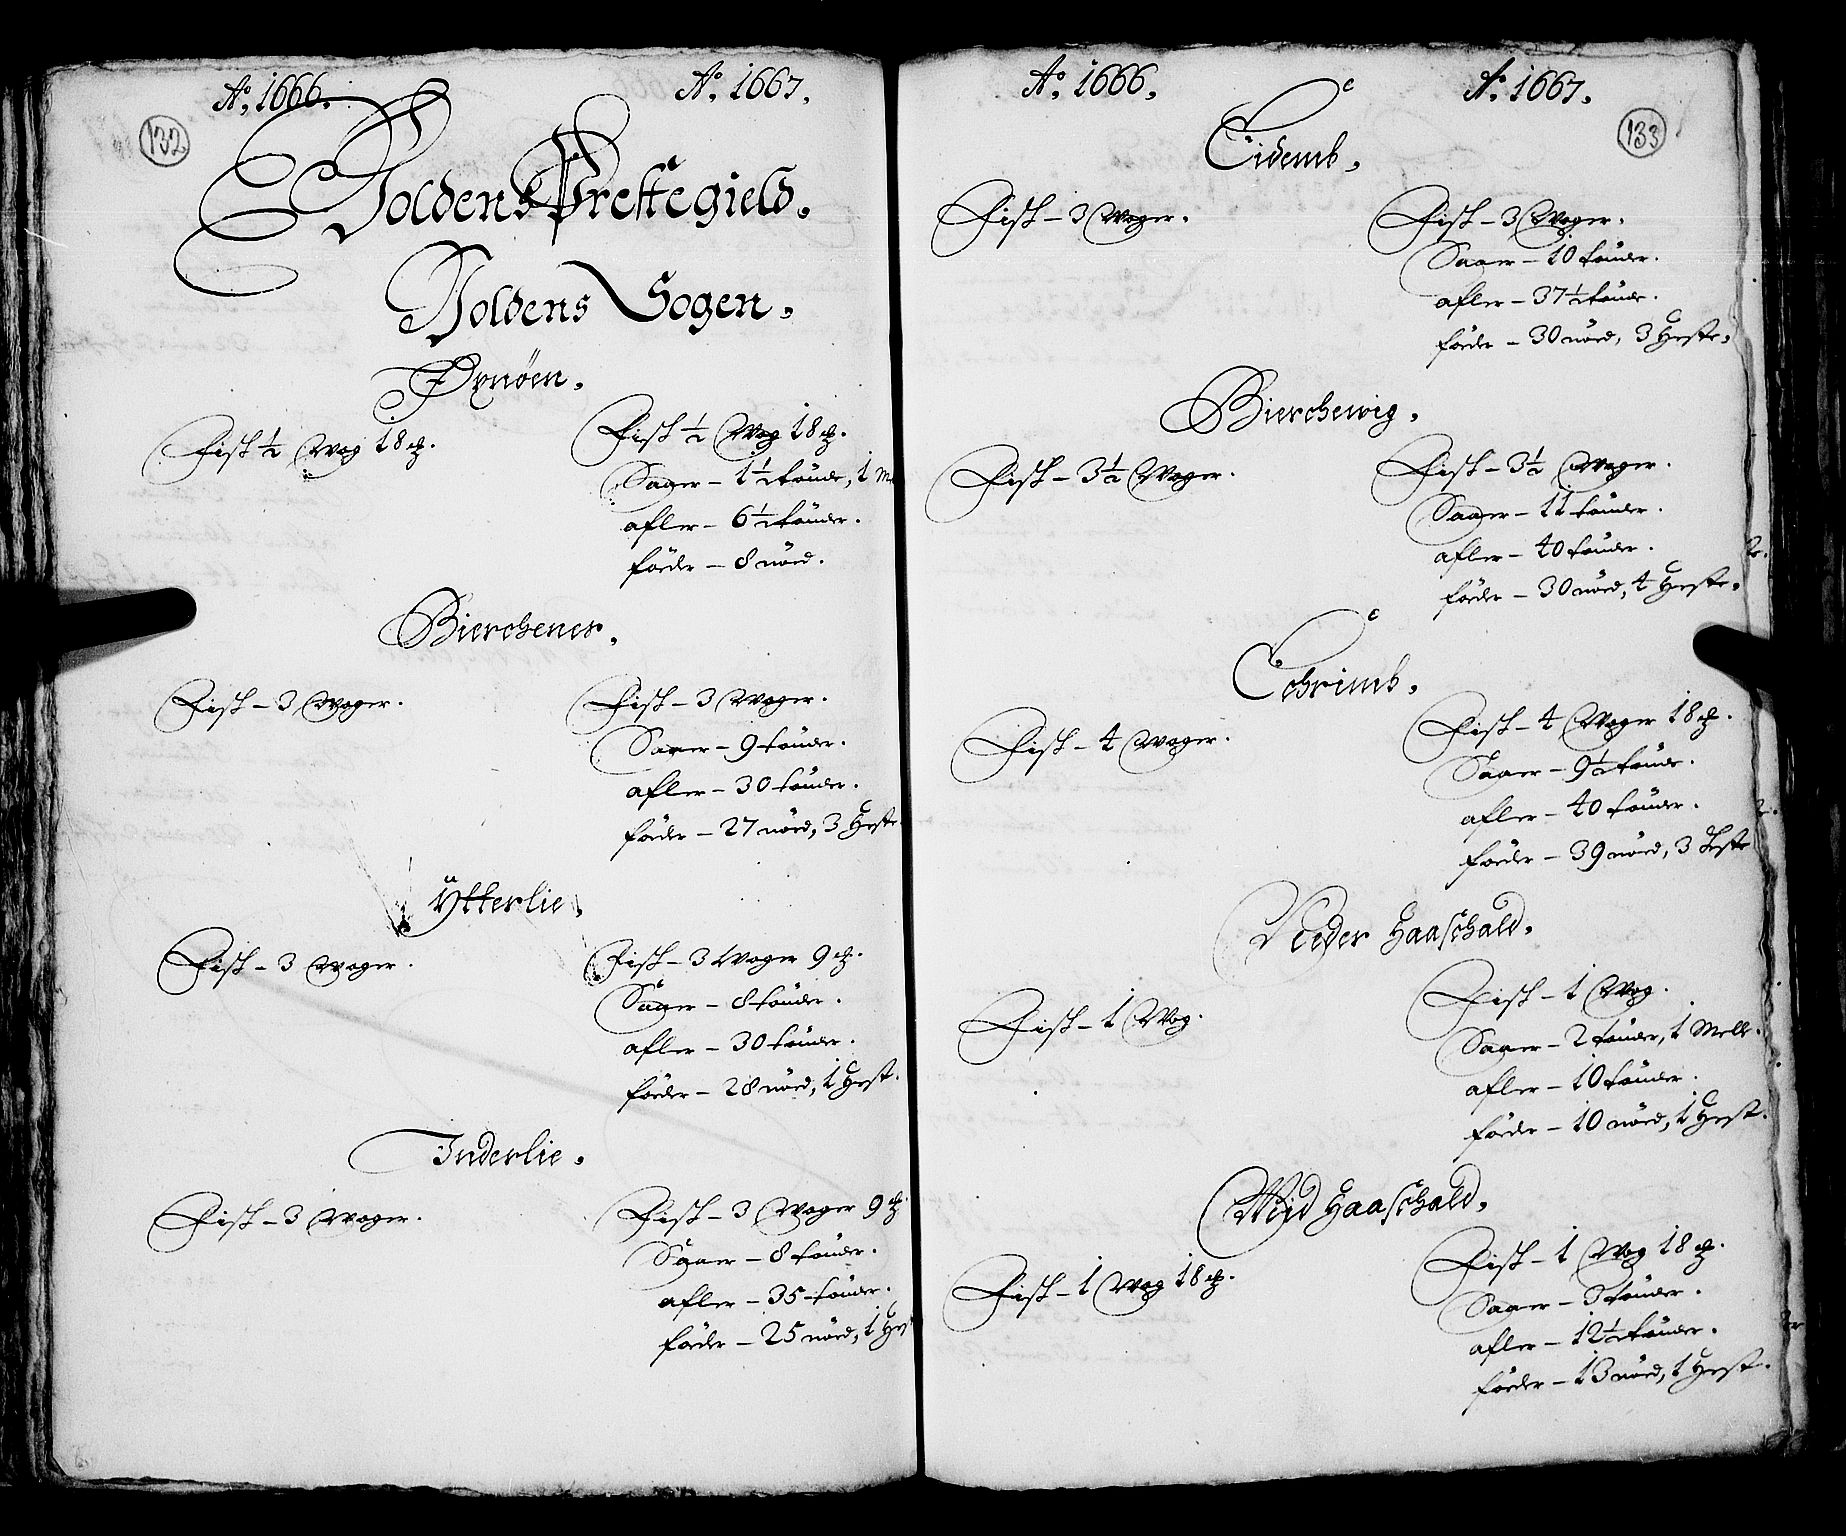 Aº. 1666. Aº. 1667.
132
Joldens Prestegield.
Joldens Sogen.
Fisk ½ Wog 18 ℔. Fisk ½ Wog 18 ℔.
Saaer – 1½ tönde, 1
afler – 6½ tönder.
föder – 8 nöed.
Bierchenes.
Fisk – 3 Woger. Fisk – 3 Woger.
Saaer – 9 tönder.
afler – 30 tönder.
föder – 27 nöed, 3 Heste
Ÿtterlie.
Fisk – 3 Woger. Fisk – 3 Woger 9 ℔.
Saaer – 8 tönder.
afler – 30 tönder.
föder – 28 nöed, 1 Hest.
Inderlie.
Fisk – 3 Woger. Fisk – 3 Woger 9 ℔
Saaer – 8 tönder.
afler – 35 tönder.
föder – 25 nöed, 1
Aº. 1666. Aº. 1667.
133
Eidemb.
Fisk – 3 Woger. Fisk – 3 Woger.
Saaer – 10 tönder.
afler – 37½ tönde.
föder – 30 nöed, 3 Heste.
Bierchewig.
Fisk – 3½ Woger. Fisk – 3½ Woger.
Saaer – 11 tönder.
afler – 40 tönder.
föder – 30 nöed, 4 Heste.
Echrimb.
Fisk – 4 Woger. Fisk – 4 Woger 18 ℔.
Saaer – 9½ tönde.
afler – 40 tönder.
föder – 39 nöed, 3 Heste
Neder Haaschald.
Fisk – 1 Wog. Fisk – 1 Wog.
Saaer – 2 tönder, 1 Melle.
afler – 10 tönder.
föder – 10 nöed, 1 Hest.
Mid Haaschald.
Fisk – 1 Wog 18 ℔. Fisk – 1 Wog 18 ℔.
Saaer – 3 tönder.
afler – 12½ tönder.
föder – 13 nöed, 1 Hest.